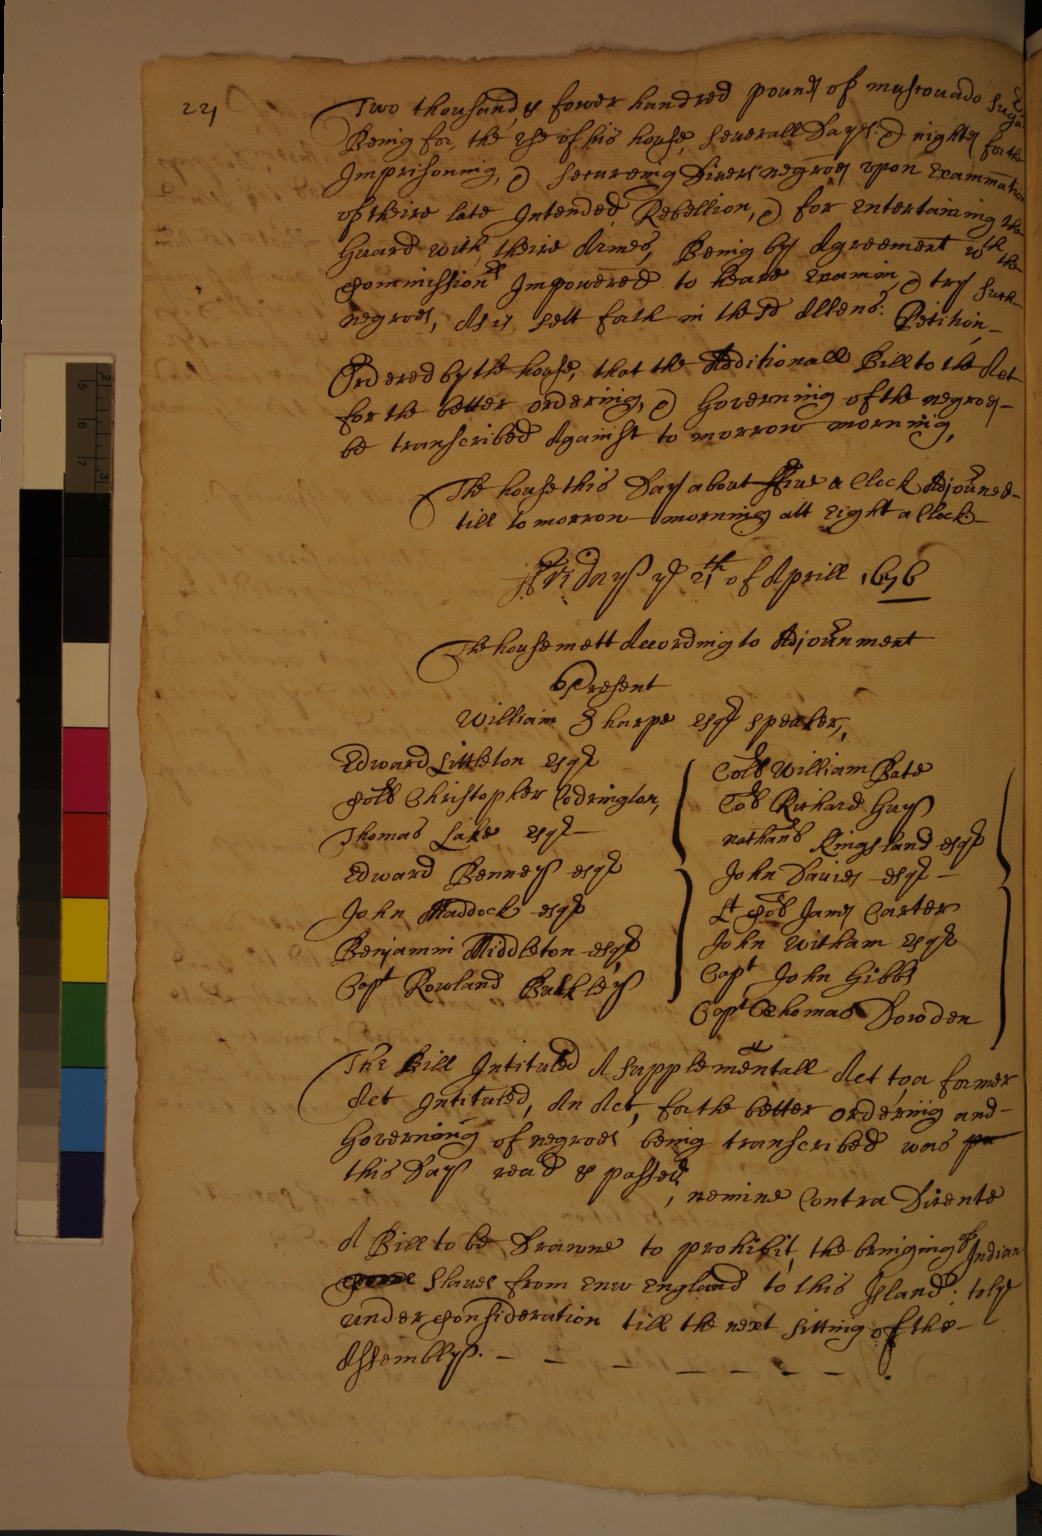 221
Two thousand, & fower hundred pounds of muscovado Sugar
Being for the use of his house, severall Days: & nights for the
Imprisoning, & secureing Divers negroes upon Examination
of theire late Intended Rebellion, & for entertaining the
Guard with theire Armes, Being by Agreement wth the
Commissionrs Impowered to heare Examin, & try such
negroes, As is sett forth in the sd Allens: Petition,
Ordered by the house, that the Additionall Bill to the Act
for the better ordering, & Governing of the negroes
be transcribed Against to morrow morning,
The house this Day about ffive a Clock Adjourned
till to morrow morning att Eight a Clock
ffriday ye 21th of Aprill 1676
The house mett According to Adjournment
Present
William Sharpe Esqr Speaker,
Edward Littleton Esqr
Coll Christopher Codrington,
Thomas Lake Esqr
Edward Benney esqr
John Maddock esqr
Benjamin Middleton esqr
Capt Rowland Bulkley
Coll William Bate
Coll Richard Guy
Nathanll Kingsland esqr
John Davies esqr
Lt Coll James Carter
John Witham Esqr
Capt John Gibbs
Capt Thomas Dowden
The Bill Intituled A Supplementall Act to a former
Act Intituled, An Act, for the better ordering and
Governing of negroes being transcribed was pa
this Day read & passed, nemine Contra Dicente
A Bill to be Drawne to prohibit, the bringing of Indian
Slaves from new England to this Island: to ly
under Consideration till the next sitting of the
Assembly.